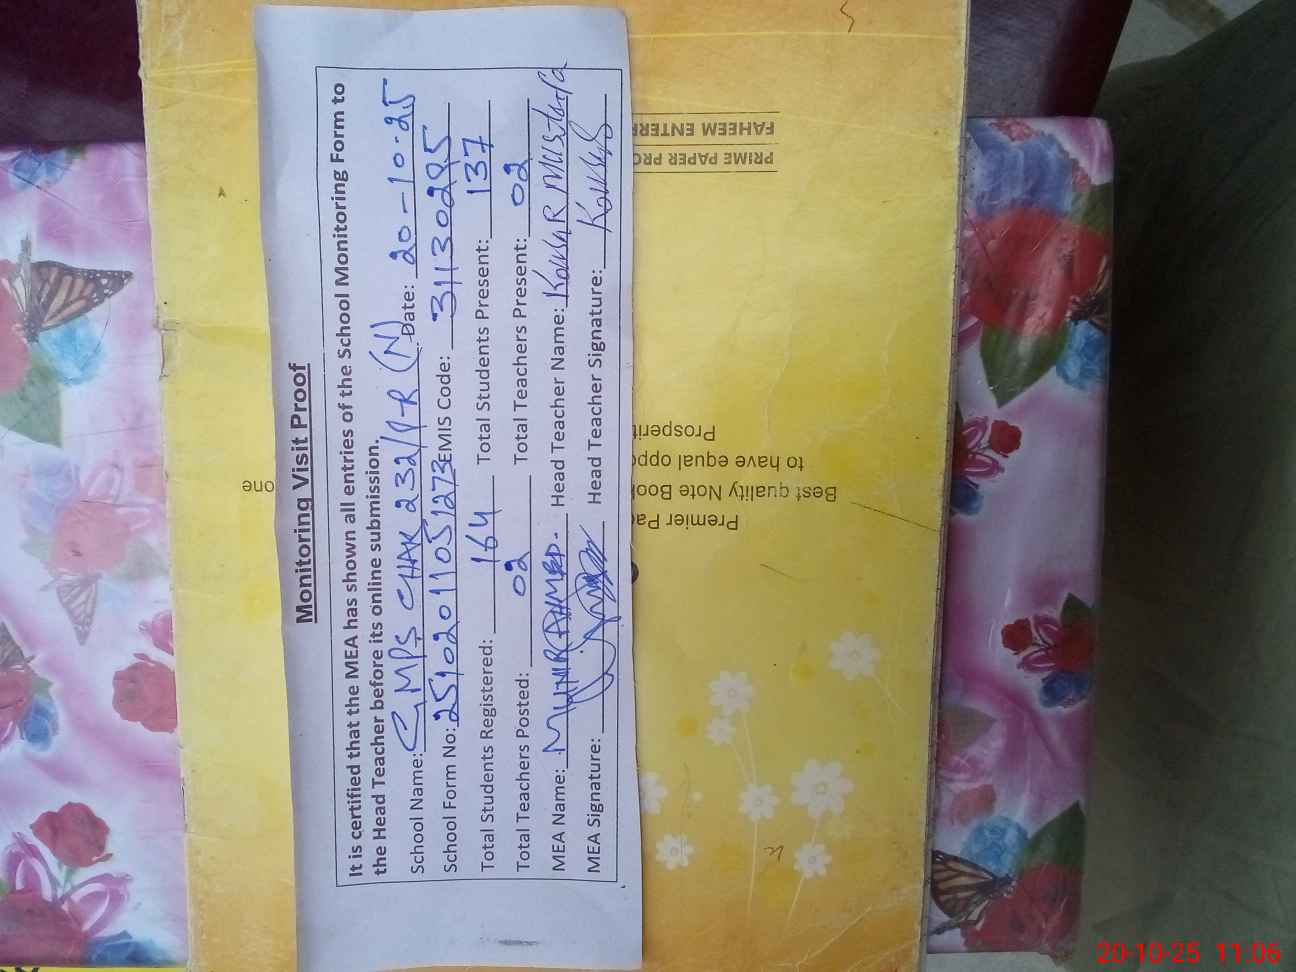 Monitoring Visit Proof
It is certified that the MEA has shown all entries of the School Monitoring Form to
the Head Teacher before its online submission.
School Name: GMPS CHAK 232/1-R (N) Date: 20-10-25
School Form No: 25102011051273 EMIS Code: 31130295
Total Students Registered: 164 Total Students Present: 137
Total Teachers Posted: 02 Total Teachers Present: 02
MEA Name: MUNIR AHMED. Head Teacher Name: KOUSAR MUSTAFA
MEA Signature: Head Teacher Signature: Kousar
FAHEEM ENTERP
PRIME PAPER PRO
Prosperit
to have equal oppo
Best quality Note Book
Premier Pa
one
20-10-25 11:06